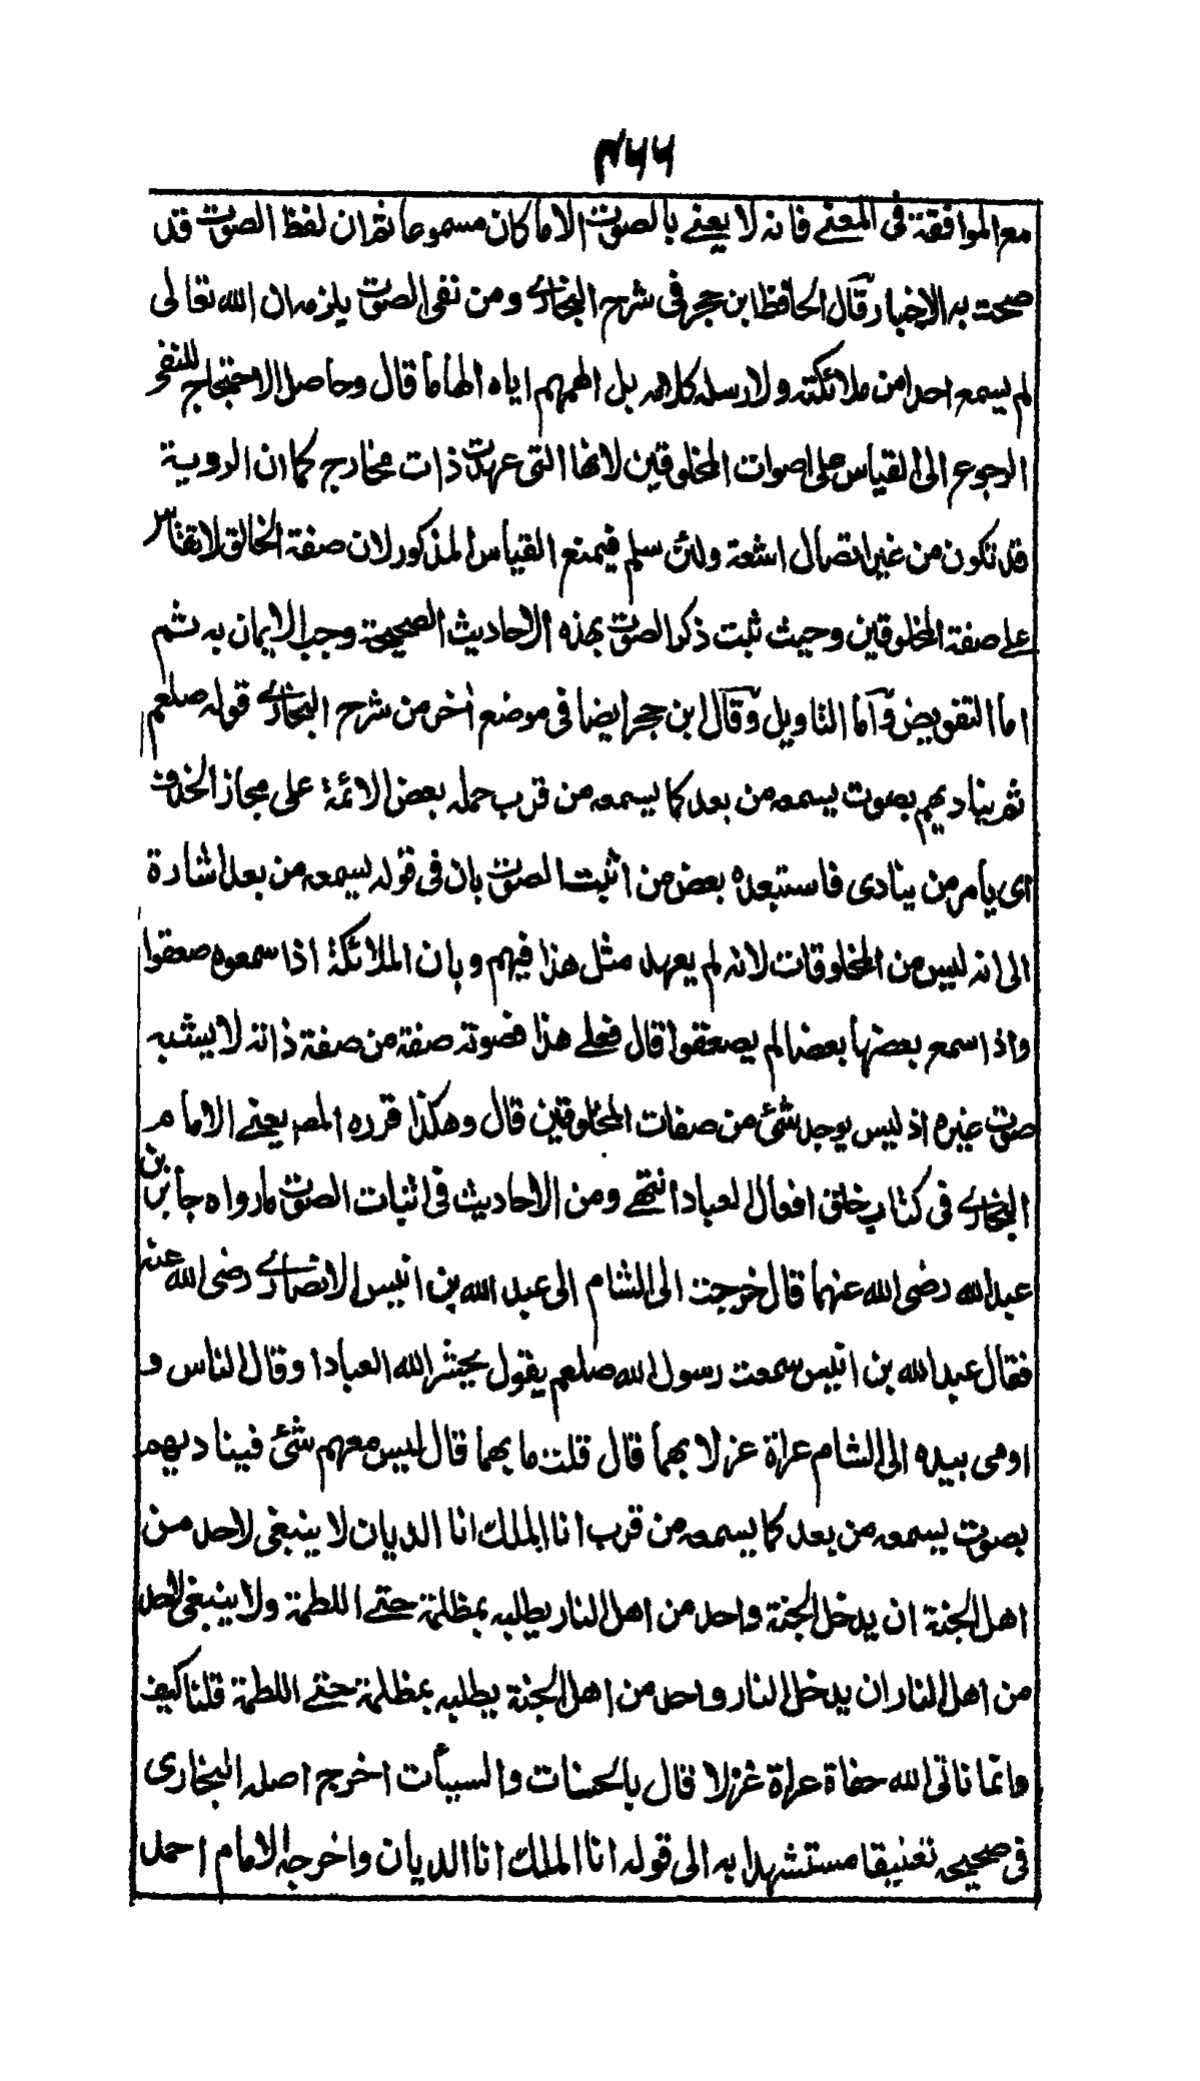 ٤٥٥
مع الموافقة فى المعنے فانه لا يعنے بالصوت الا ما كان مسموعا ثم ان لفظ الصوت قد
صحت به الاخبار قال الحافظ ابن حجر فى شرح البخارے ومن نفى الصوت يلزمه ان الله تعالى
لم يسمع احدا من ملائكته ولا رسله كلامه بل الهمهم اياه الهاما قال وحاصل الاحتجاج للنفى
الرجوع الى القياس على اصوات المخلوقين لانها التى عهدت ذات مخارج كما ان الروية
قد تكون من غير اتصال اشعة ولئن سلم فيمنع القياس المذكور لان صفة الخالق لا تقاس
على صفة المخلوقين وحيث ثبت ذكر الصوت بهذه الاحاديث الصحيحة وجب الايمان به ثم
اما التفويض وآما التاويل وقال ابن حجر ايضا فى موضع اخر من شرح البخارے قوله صلعم
ثم يناديهم بصوت يسمعه من بعد كما يسمعه من قرب حمله بعض الائمة على مجاز الحذف
اى يأمر من ينادى فاستبعده بعض من اثبت الصوت بان فى قوله يسمعه من بعد اشارة
الى انه ليس من المخلوقات لانه لم يعهد مثل هذا فيهم وبان الملائكة اذا سمعوه صعقوا
واذا سمع بعضها بعضا لم يصعقوا قال فعلے هذا فصوته صفة من صفة ذاته لا يشبه
صوت غيره اذ ليس يوجد شئ من صفات المخلوقين قال وهكذا قرره المصـ يعنے الامام
البخارے فى كتاب خلق افعال العباد انتهے ومن الاحاديث فى اثبات الصوت ما رواه جابر بن
عبد الله رضى الله عنهما قال خرجت الى الشام الى عبد الله بن انيس الانصارے رضى الله عنه
فقال عبد الله بن انيس سمعت رسول الله صلعم يقول يحشر الله العباد او قال الناس و
اومى بيده الى الشام عراة عزلا بهما قال قلت ما بهما قال ليس معهم شئ فيناديهم
بصوت يسمعه من بعد كما يسمعه من قرب انا الملك انا الديان لا ينبغى لاحد من
اهل الجنة ان يدخل الجنة واحد من اهل النار يطلبه بمظلمة حتے اللطمة ولا ينبغى لاحد
من اهل النار ان يدخل النار واحد من اهل الجنة يطلبه بمظلمة حتے اللطمة قلنا كيف
وانما ناتى الله حفاة عراة غزلا قال بالحسنات والسيأت اخرج اصله البخارى
فى صحيحه تعنيقا مستشهدا به الى قوله انا الملك انا الديان واخرجه الامام احمد